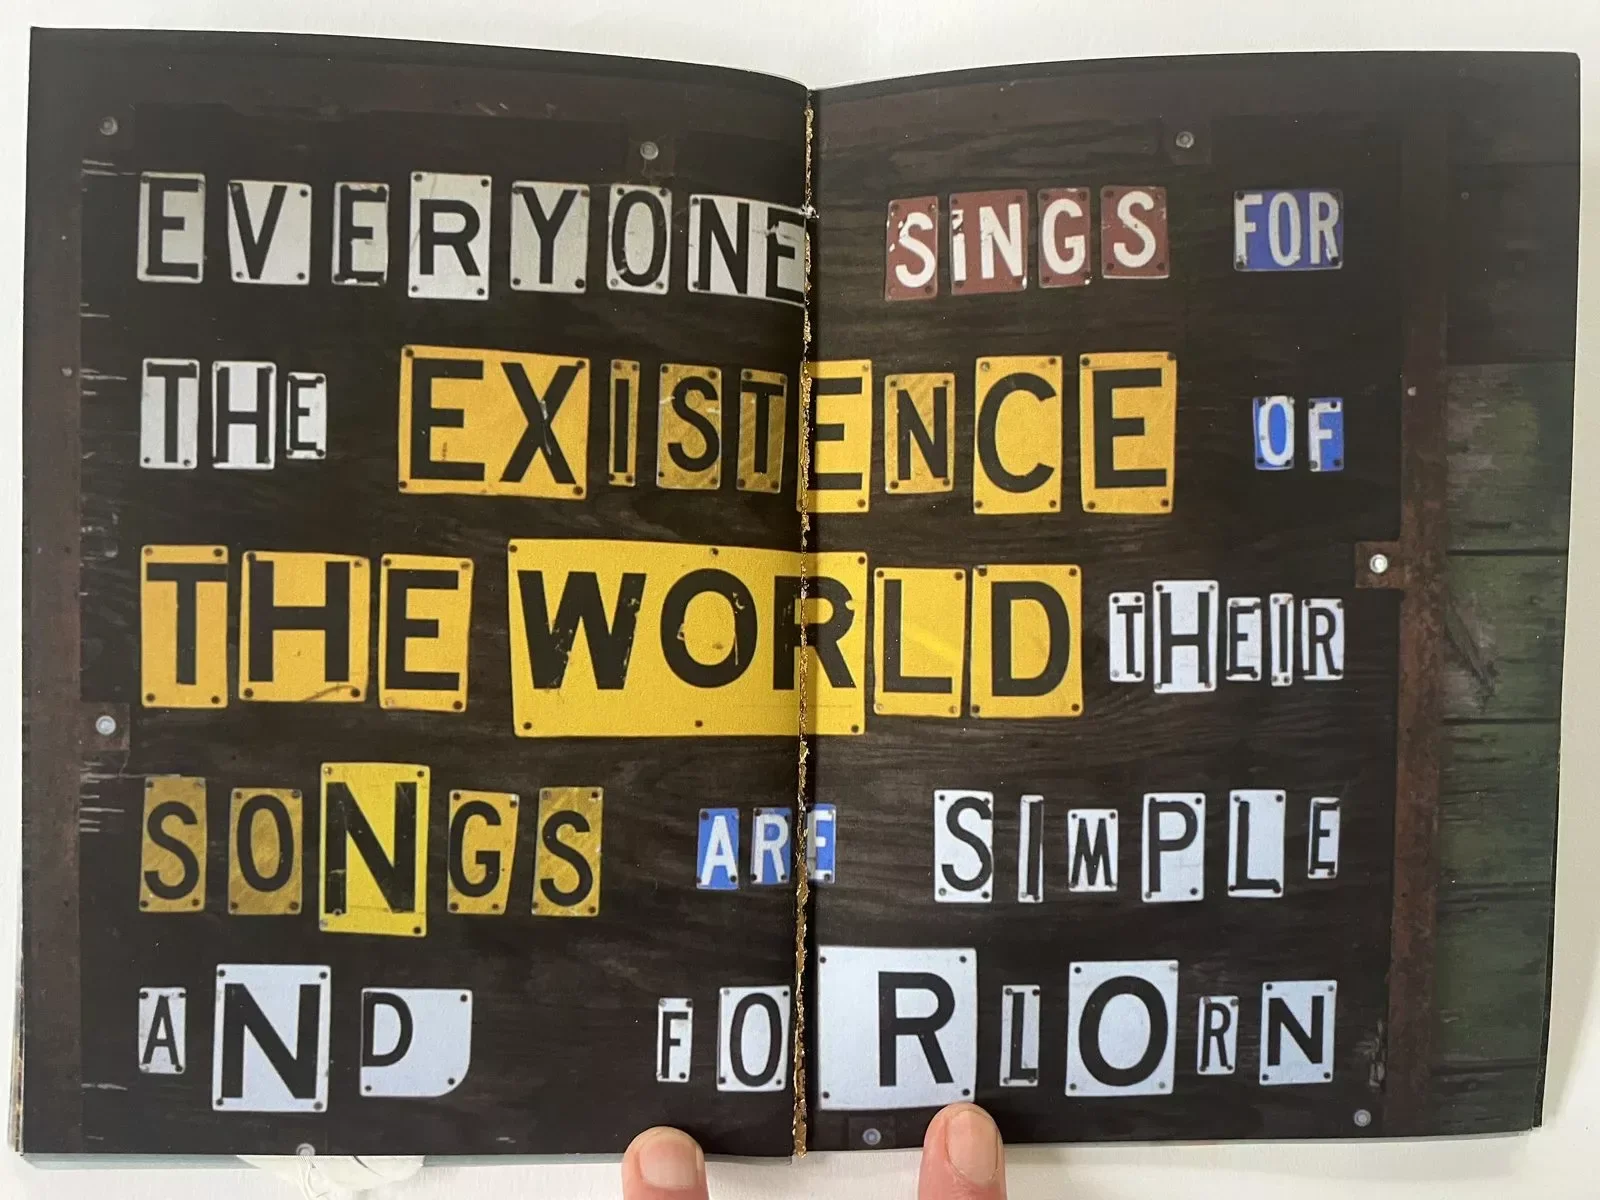 EVERYONE SiNGS FOR
THE EXISTENCE OF
THE WORLD THEIR
SONGS ARE SIMPLE
AND FORLORN